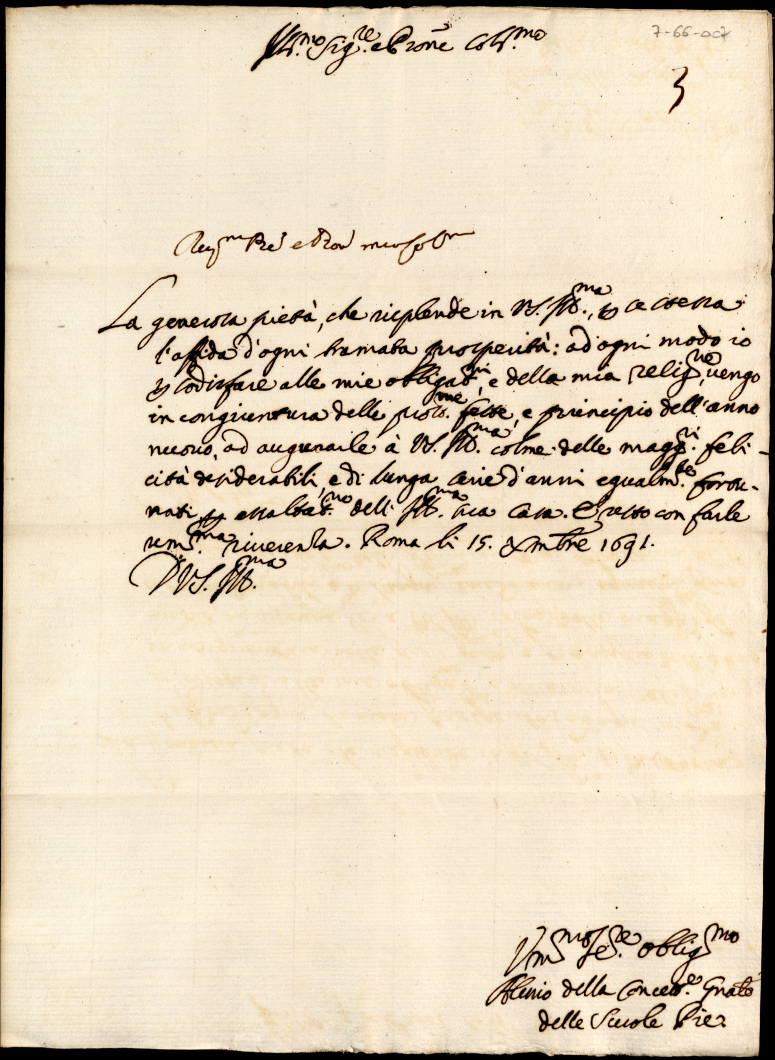 7-66-007
Ill.mo Sig.re e Prōne Col.mo
3
Rev.mo Pre e Pron mio Col.mo
La generosa pietà, che risplende in VS. Ill.ma, p se stessa
l'affida d'ogni bramata prosperità: ad ogni modo io
p sodisfare alle mie obligat.ni, e della mia Relig.ne, vengo
in congiuntura delle pross.me feste, e principio dell'anno
nuovo, ad augurarle à VS. Ill.ma colme delle magg.ri feli-
cità desiderabili, e di lunga serie d'anni egualm.te fortu-
nati p essaltat.ne dell' Ill.ma sua Casa. E resto con farle
um.ma riverenza. Roma li 15. Xmbre 1691.
D VS. Ill.ma
Um.mo Se.re oblig.mo
Alesio della Concett.e Gnale
delle Scuole Pie